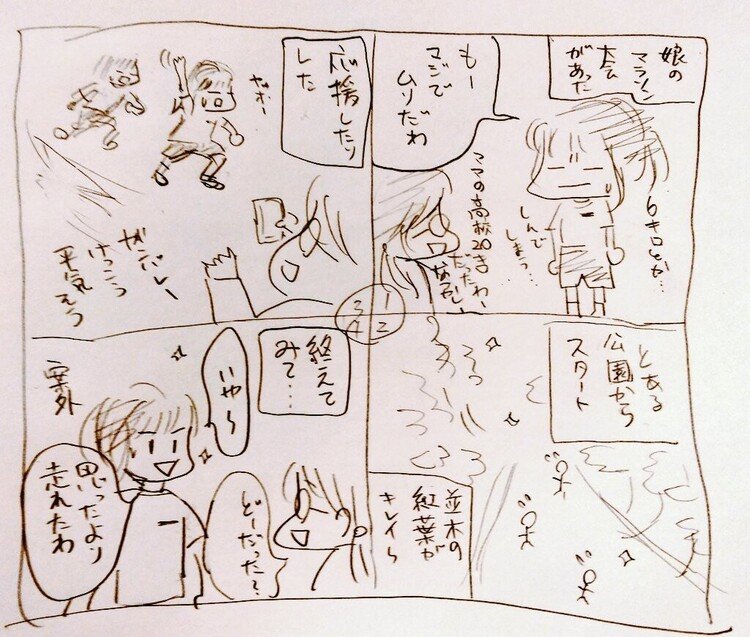 娘の
マラソン
大会
があった
もー
マジで
ムリだわ
6キロとか…
しんで
しまう…
ママの高校20キロ
だったわー
1
2
3
4
とある
公園から
スタート
並木の
紅葉が
キレイ〜
応援したり
した
ヤホー
ガンバレー
けっこう
平気そう
終えて
みて…
どーだった?
いや〜
案外
思ったより
走れたわ